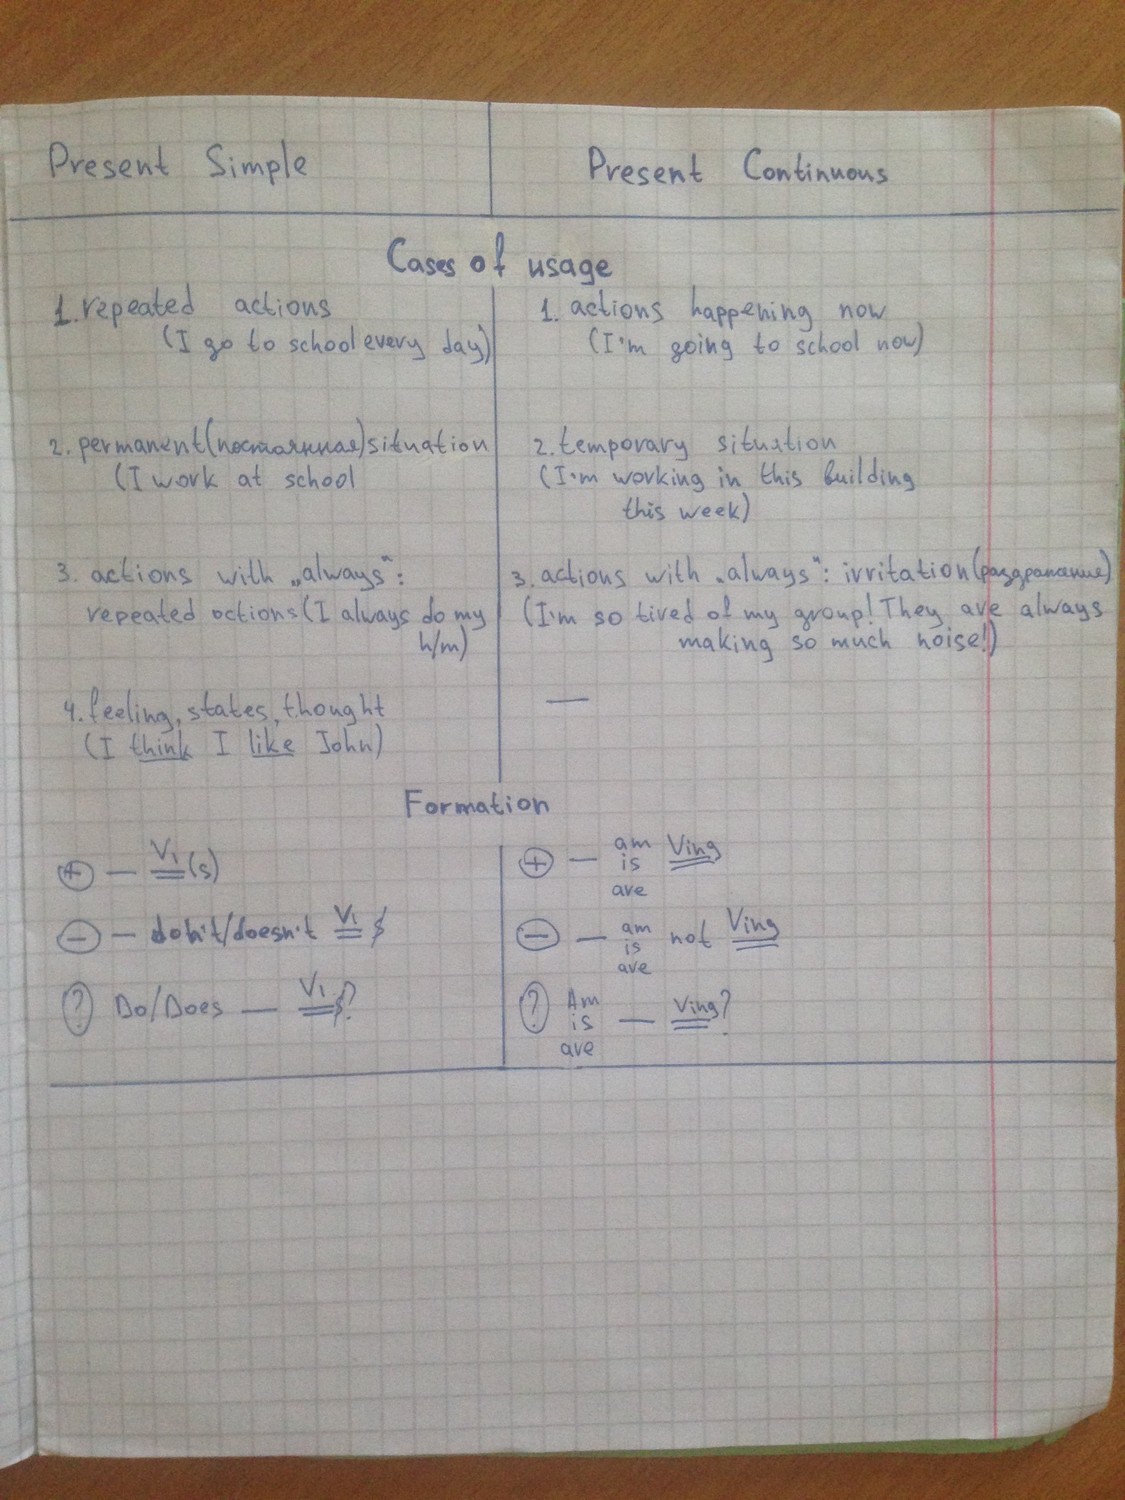 Present Simple
Present Continuous
Cases of usage
1. repeated actions
(I go to school every day)
1. actions happening now
(I'm going to school now)
2. permanent (постоянная) situation
(I work at school
2. temporary situation
(I'm working in this building
this week)
3. actions with „always":
repeated actions (I always do my
h/m)
3. actions with „always": irritation (раздражение)
(I'm so tired of my group! They are always
making so much noise!)
4. feeling, states, thought
(I think I like John)
—
Formation
+ — V1(s)
- — don't/doesn't V1 s
? Do/Does — V1 s?
+ — am Ving
is
are
- — am not Ving
is
are
? Am — Ving?
is
are